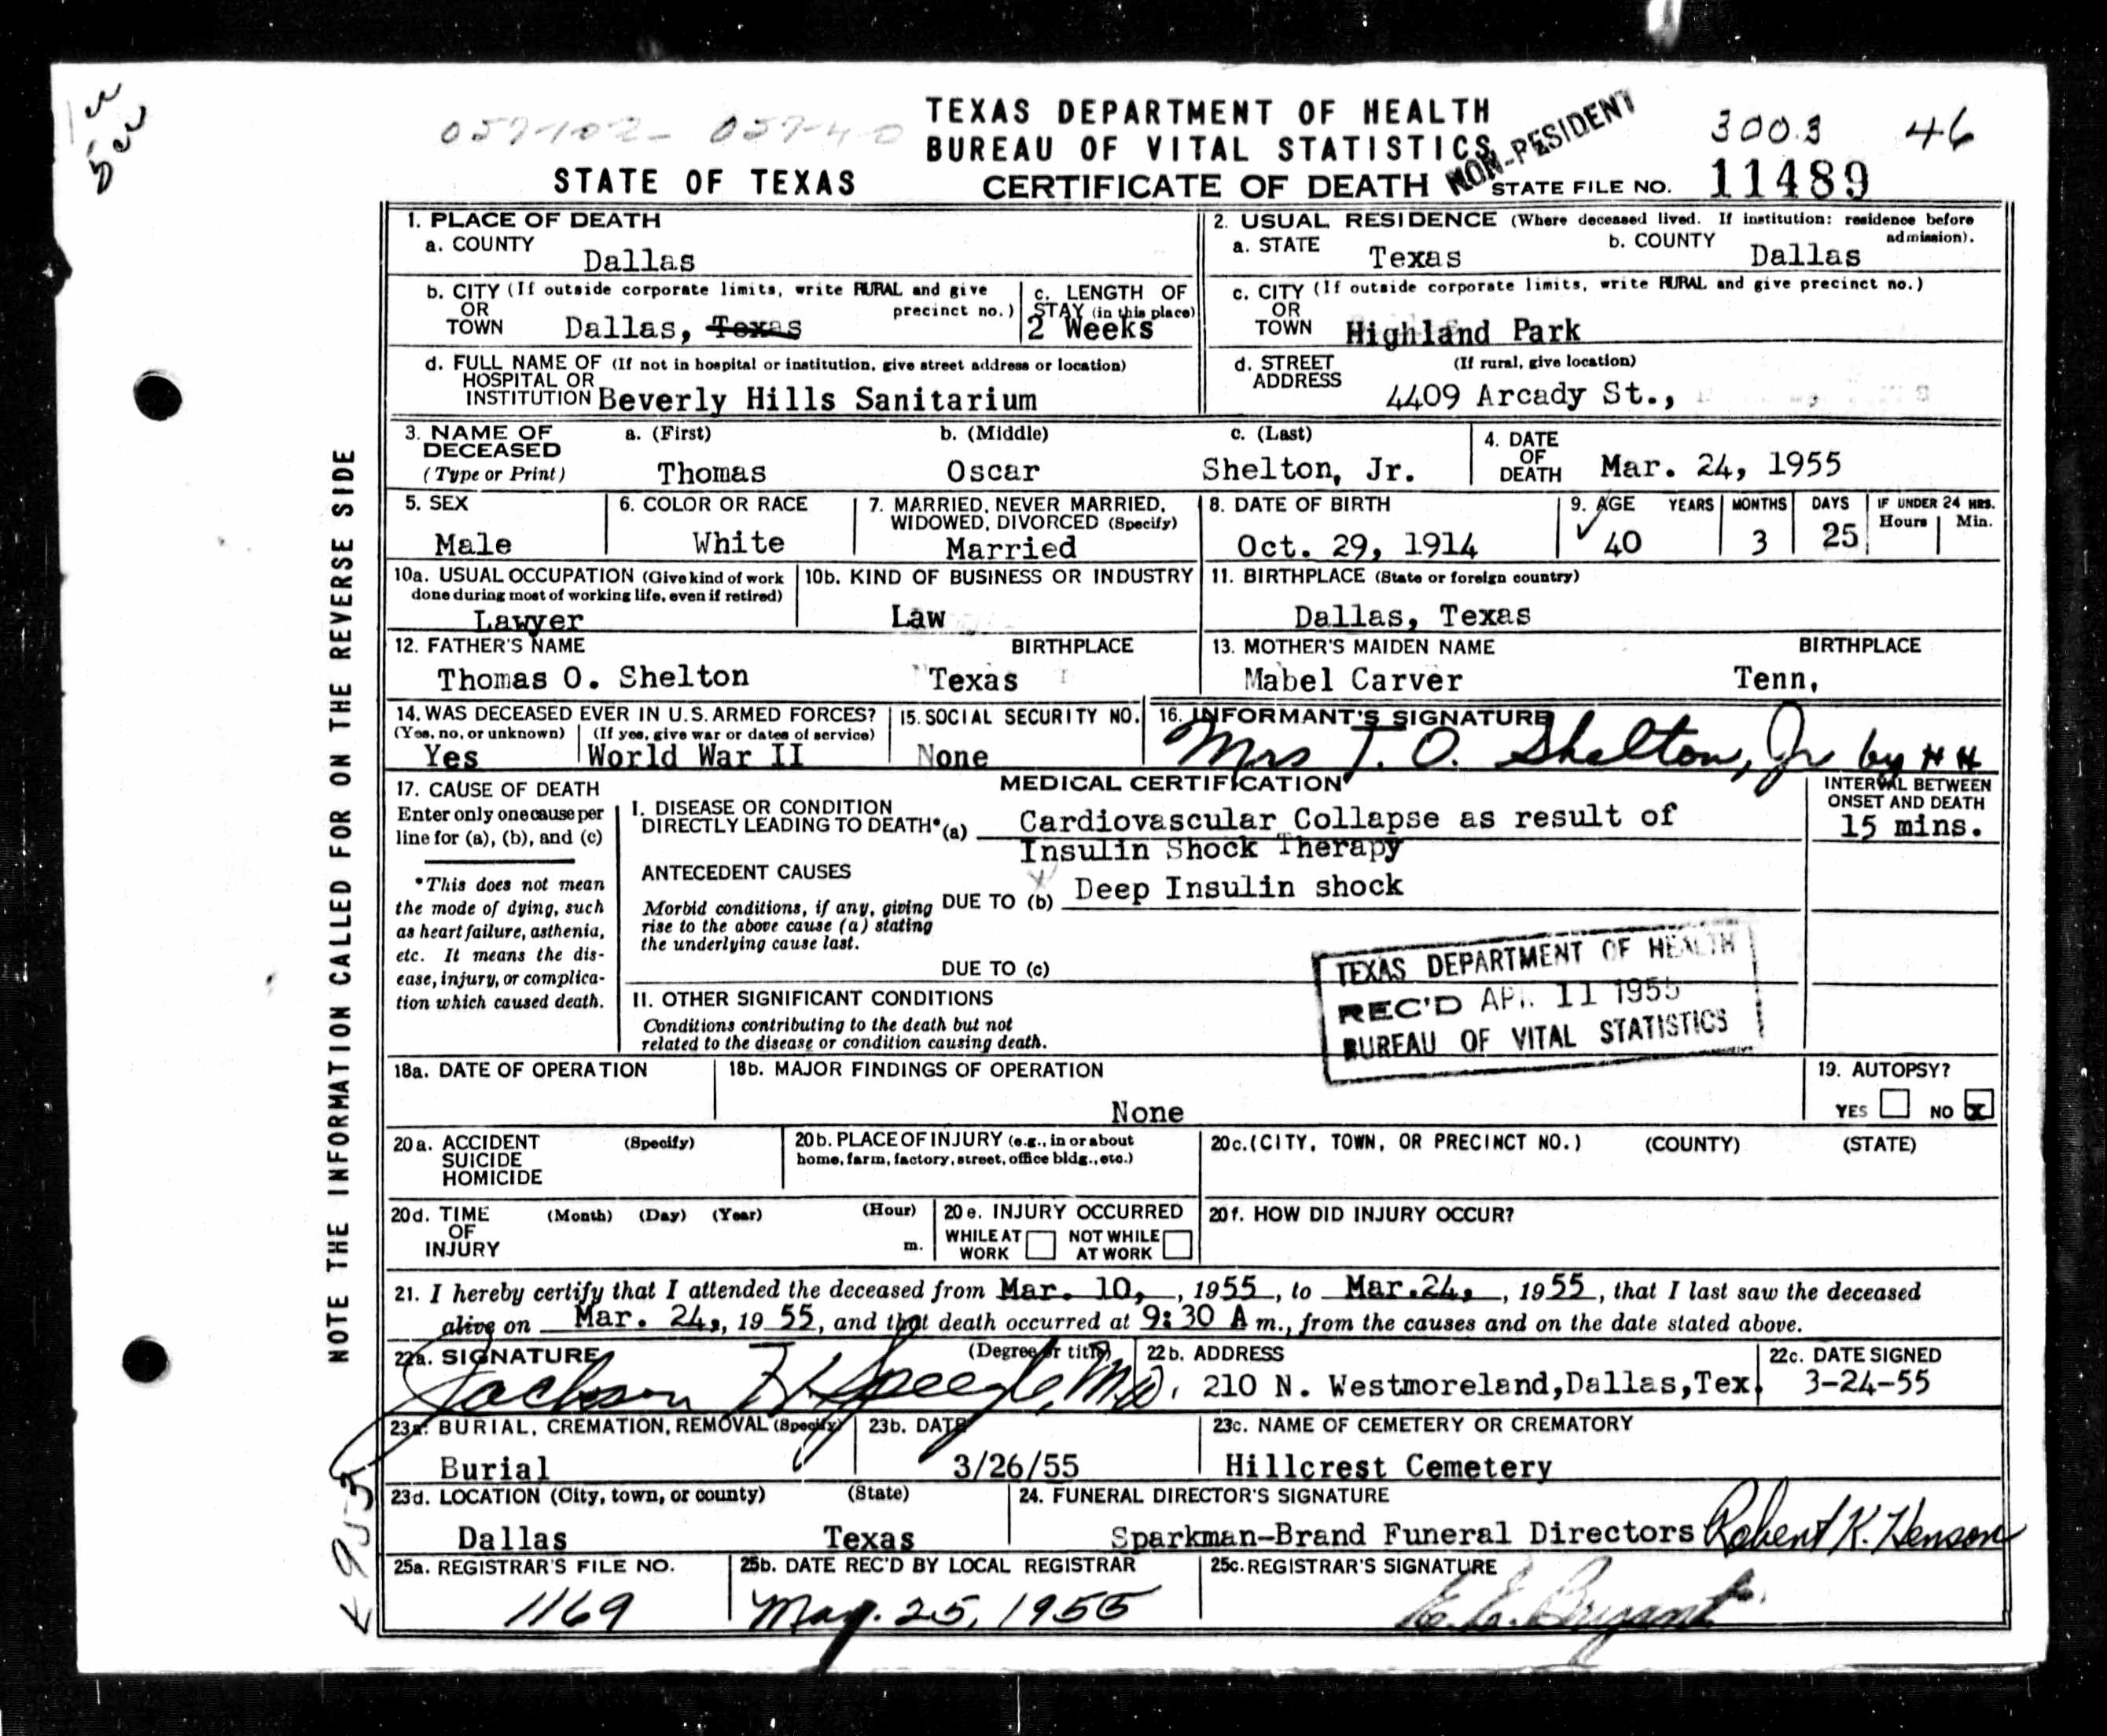 TEXAS DEPARTMENT OF HEALTH
BUREAU OF VITAL STATISTICS
NON-RESIDENT
3003 46
STATE OF TEXAS
CERTIFICATE OF DEATH
STATE FILE NO. 11489
1. PLACE OF DEATH
a. COUNTY
Dallas
b. CITY (If outside corporate limits, write RURAL and give precinct no.)
OR
TOWN Dallas, Texas
c. LENGTH OF
STAY (in this place)
2 Weeks
d. FULL NAME OF (If not in hospital or institution, give street address or location)
HOSPITAL OR
INSTITUTION Beverly Hills Sanitarium
2. USUAL RESIDENCE (Where deceased lived. If institution: residence before admission).
a. STATE Texas b. COUNTY Dallas
c. CITY (If outside corporate limits, write RURAL and give precinct no.)
OR
TOWN Highland Park
d. STREET (If rural, give location)
ADDRESS
4409 Arcady St.,
3. NAME OF
DECEASED
(Type or Print)
a. (First) b. (Middle) c. (Last)
Thomas Oscar Shelton, Jr.
4. DATE
OF
DEATH Mar. 24, 1955
5. SEX
Male
6. COLOR OR RACE
White
7. MARRIED, NEVER MARRIED,
WIDOWED, DIVORCED (Specify)
Married
8. DATE OF BIRTH
Oct. 29, 1914
9. AGE YEARS MONTHS DAYS IF UNDER 24 HRS.
Hours Min.
40 3 25
10a. USUAL OCCUPATION (Give kind of work
done during most of working life, even if retired)
Lawyer
10b. KIND OF BUSINESS OR INDUSTRY
Law
11. BIRTHPLACE (State or foreign country)
Dallas, Texas
12. FATHER'S NAME BIRTHPLACE
Thomas O. Shelton Texas
13. MOTHER'S MAIDEN NAME BIRTHPLACE
Mabel Carver Tenn,
14. WAS DECEASED EVER IN U.S. ARMED FORCES?
(Yes, no, or unknown) (If yes, give war or dates of service)
Yes World War II
15. SOCIAL SECURITY NO.
None
16. INFORMANT'S SIGNATURE
Mrs T. O. Shelton, Jr by HH
17. CAUSE OF DEATH
Enter only one cause per
line for (a), (b), and (c)
*This does not mean
the mode of dying, such
as heart failure, asthenia,
etc. It means the dis-
ease, injury, or complica-
tion which caused death.
MEDICAL CERTIFICATION
INTERVAL BETWEEN
ONSET AND DEATH
15 mins.
I. DISEASE OR CONDITION
DIRECTLY LEADING TO DEATH* (a) Cardiovascular Collapse as result of
Insulin Shock Therapy
ANTECEDENT CAUSES
Morbid conditions, if any, giving
rise to the above cause (a) stating
the underlying cause last.
DUE TO (b) Deep Insulin shock
DUE TO (c)
II. OTHER SIGNIFICANT CONDITIONS
Conditions contributing to the death but not
related to the disease or condition causing death.
TEXAS DEPARTMENT OF HEALTH
REC'D APR. 11 1955
BUREAU OF VITAL STATISTICS
18a. DATE OF OPERATION
18b. MAJOR FINDINGS OF OPERATION
None
19. AUTOPSY?
YES NO X
20a. ACCIDENT (Specify)
SUICIDE
HOMICIDE
20b. PLACE OF INJURY (e.g., in or about
home, farm, factory, street, office bldg., etc.)
20c. (CITY, TOWN, OR PRECINCT NO.) (COUNTY) (STATE)
20d. TIME (Month) (Day) (Year) (Hour)
OF
INJURY m.
20e. INJURY OCCURRED
WHILE AT WORK NOT WHILE AT WORK
20f. HOW DID INJURY OCCUR?
21. I hereby certify that I attended the deceased from Mar. 10, , 1955, to Mar.24, , 1955, that I last saw the deceased
alive on Mar. 24,, 19 55, and that death occurred at 9:30 A m., from the causes and on the date stated above.
22a. SIGNATURE (Degree or title)
Jackson H Speegle, M.D.
22b. ADDRESS
210 N. Westmoreland,Dallas,Tex.
22c. DATE SIGNED
3-24-55
23a. BURIAL, CREMATION, REMOVAL (Specify)
Burial
23b. DATE
3/26/55
23c. NAME OF CEMETERY OR CREMATORY
Hillcrest Cemetery
23d. LOCATION (City, town, or county) (State)
Dallas Texas
24. FUNERAL DIRECTOR'S SIGNATURE
Sparkman-Brand Funeral Directors Robert K. Henson
25a. REGISTRAR'S FILE NO.
1169
25b. DATE REC'D BY LOCAL REGISTRAR
Mar. 25, 1955
25c. REGISTRAR'S SIGNATURE
E. E. Bryant
NOTE THE INFORMATION CALLED FOR ON THE REVERSE SIDE